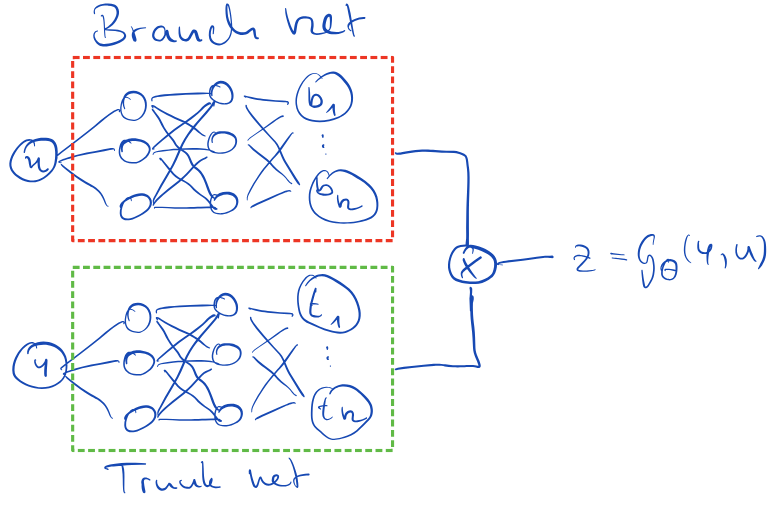 Branch net
u
b1
⋮
bn
x
z = Gθ(y, u)
y
t1
⋮
tn
Trunk net